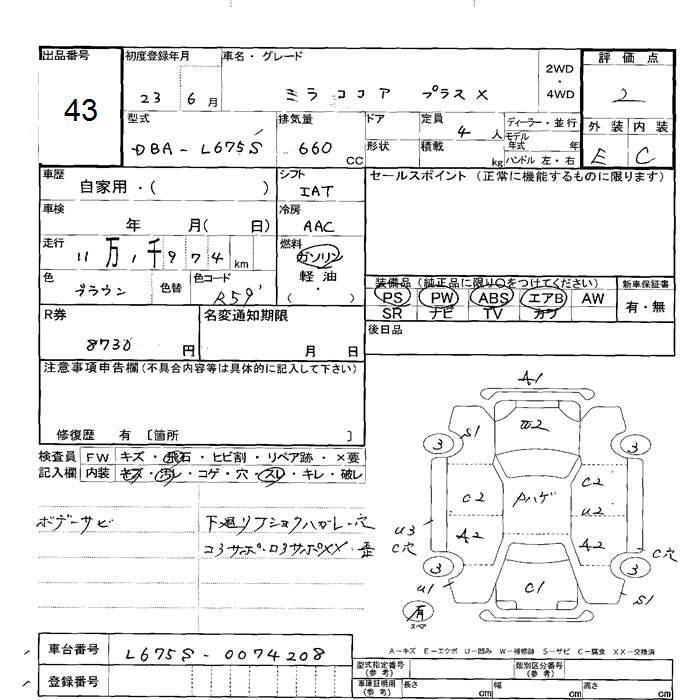 出品番号 初度登録年月 車名・グレード 2WD・4WD 評価点
43 23 6月 ミラココア プラスX 2
型式 排気量 ドア 定員 4人 ディーラー・並行 外装 内装
DBA-L675S 660 CC 形状 積載 kg モデル年式 年 ハンドル 左・右 E C
車歴 シフト セールスポイント (正常に機能するものに限ります)
自家用・( ) IAT
車検 冷房
年 月( 日) AAC
走行 燃料
11万1千974km ガソリン
色 色替 色コード 軽油
ブラウン R59 ( ・ )
装備品 (純正品に限り○をつけてください) 新車保証書
PS PW ABS エアB AW 有・無
SR ナビ TV カワ
R券 名変通知期限 後日品
8730円 月 日
注意事項申告欄(不具合内容等は具体的に記入して下さい)
修復歴 有 〔箇所 〕
検査員 FW キズ・飛石・ヒビ割・リペア跡・×要
記入欄 内装 キズ・汚レ・コゲ・穴・スレ・キレ・破レ
ボデーサビ 下廻リ
コ3サポ・ロ3サポXX・
A1
S1 W2
3 3
C2 Pハゲ C2
U2
U3 A2 A2
C穴 C穴
3 3
U1 C1 S1
有
スペア
A−キズ E−エクボ U−凹み W−補修跡 S−サビ C−腐食 XX−交換済
車台番号 L675S-0074208
登録番号
型式指定番号(参考) 類別区分番号(参考)
車庫証明用(参考) 長さ cm 幅 cm 高さ cm